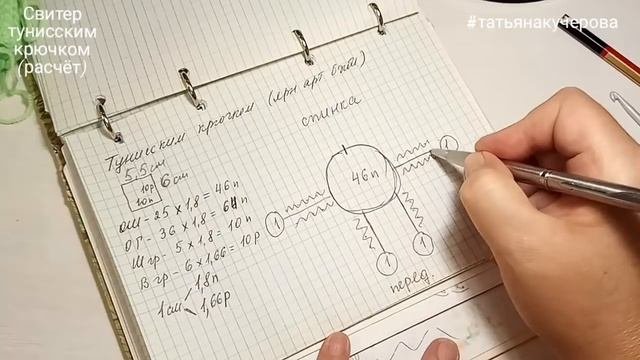 Свитер
тунисским
крючком
(расчёт)
#татьянакучерова
Тунисским крючком (
спинка
5,5см
10р
10п
6см
ОШ - 25 × 1,8 = 46п
ОГ - 36 × 1,8 = 64п
Ш гр - 5 × 1,8 = 10п
В гр - 6 × 1,66 = 10р
1см
1,8п
1,66р
46п
1
1
1
1
перед.